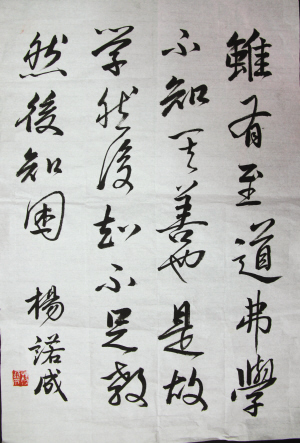 雖有至道弗學
不知其善也是故
学然後知不足教
然後知困
楊諾成